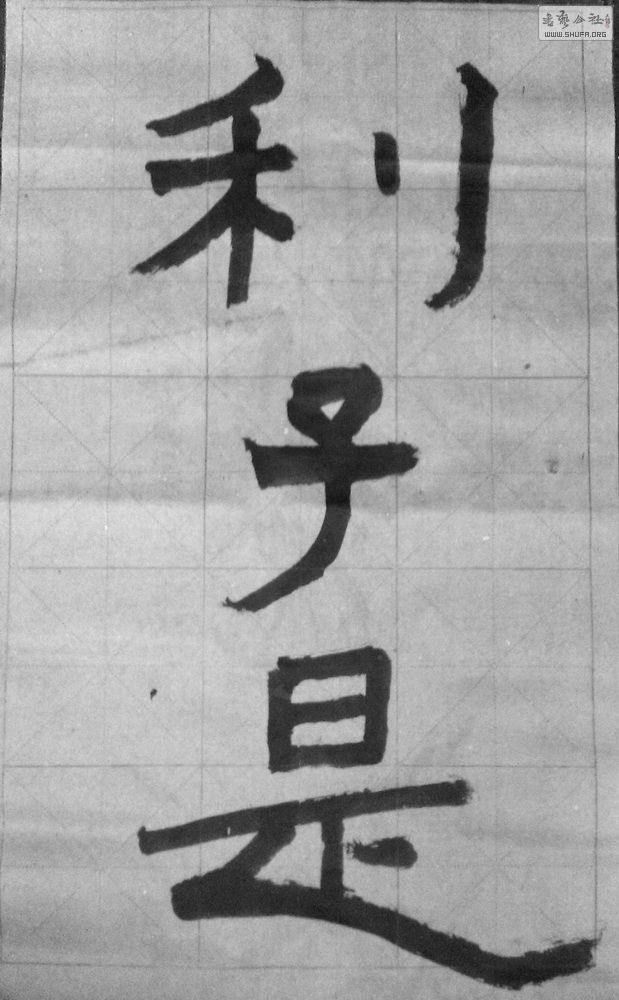 利子是
书艺公社
WWW.SHUFA.ORG